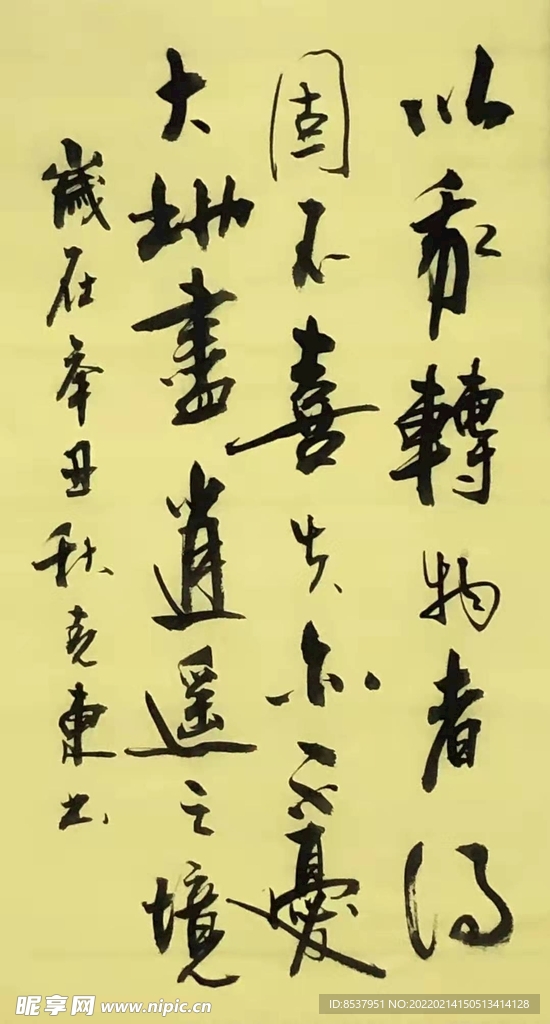 以我轉物者得
固不喜失亦不憂
大地盡逍遥之境
歲在辛丑秋東书
昵享网 www.nipic.cn
ID:8537951 NO:20220214150513414128